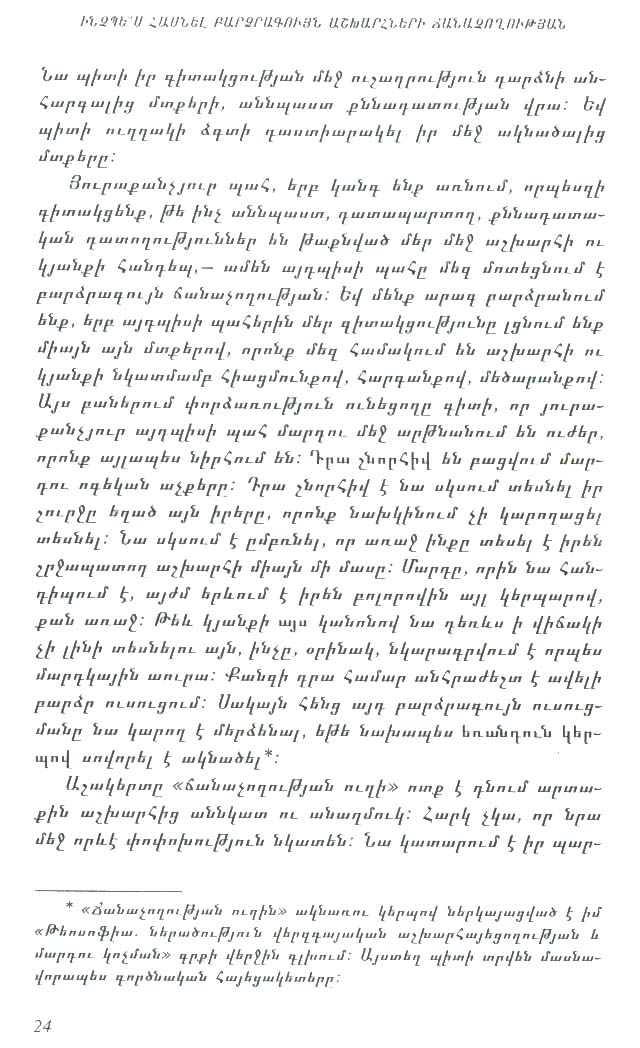 ԻՆՉՊԵ՞Ս ՀԱՍՆԵԼ ԲԱՐՁՐԱԳՈՒՅՆ ԱՇԽԱՐՀՆԵՐԻ ՃԱՆԱՉՈՂՈՒԹՅԱՆ
Նա պիտի իր գիտակցության մեջ ուշադրություն դարձնի ան-
հարգալից մտքերի, աննպաստ քննադատության վրա: Եվ
պիտի ուղղակի ձգտի դաստիարակել իր մեջ ակնածալից
մտքերը:
Յուրաքանչյուր պահ, երբ կանգ ենք առնում, որպեսզի
գիտակցենք, թե ինչ աննպաստ, դատապարտող, քննադատա-
կան դատողություններ են թաքնված մեր մեջ աշխարհի ու
կյանքի հանդեպ,— ամեն այդպիսի պահը մեզ մոտեցնում է
բարձրագույն ճանաչողության: Եվ մենք արագ բարձրանում
ենք, երբ այդպիսի պահերին մեր գիտակցությունը լցնում ենք
միայն այն մտքերով, որոնք մեզ համակում են աշխարհի ու
կյանքի նկատմամբ հիացմունքով, հարգանքով, մեծարանքով:
Այս բաներում փորձառություն ունեցողը գիտի, որ յուրա-
քանչյուր այդպիսի պահ մարդու մեջ արթնանում են ուժեր,
որոնք այլապես նիրհում են: Դրա շնորհիվ են բացվում մար-
դու ոգեկան աչքերը: Դրա շնորհիվ է նա սկսում տեսնել իր
շուրջը եղած այն իրերը, որոնք նախկինում չի կարողացել
տեսնել: Նա սկսում է ըմբռնել, որ առաջ ինքը տեսել է իրեն
շրջապատող աշխարհի միայն մի մասը: Մարդը, որին նա հան-
դիպում է, այժմ երևում է իրեն բոլորովին այլ կերպարով,
քան առաջ: Թեև կյանքի այս կանոնով նա դեռևս ի վիճակի
չի լինի տեսնելու այն, ինչը, օրինակ, նկարագրվում է որպես
մարդկային աուրա: Քանզի դրա համար անհրաժեշտ է ավելի
բարձր ուսուցում: Սակայն հենց այդ բարձրագույն ուսուց-
մանը նա կարող է մերձենալ, եթե նախապես եռանդուն կեր-
պով սովորել է ակնածել*:
Աշակերտը «ճանաչողության ուղի» ոտք է դնում արտա-
քին աշխարհից աննկատ ու անաղմուկ: Հարկ չկա, որ նրա
մեջ որևէ փոփոխություն նկատեն: Նա կատարում է իր պար-
* «Ճանաչողության ուղին» ակնառու կերպով ներկայացված է իմ
«Թեոսոֆիա. ներածություն վերզգայական աշխարհայեցողության և
մարդու կոչման» գրքի վերջին գլխում: Այստեղ պիտի տրվեն մասնա-
վորապես գործնական հայեցակետերը:
24